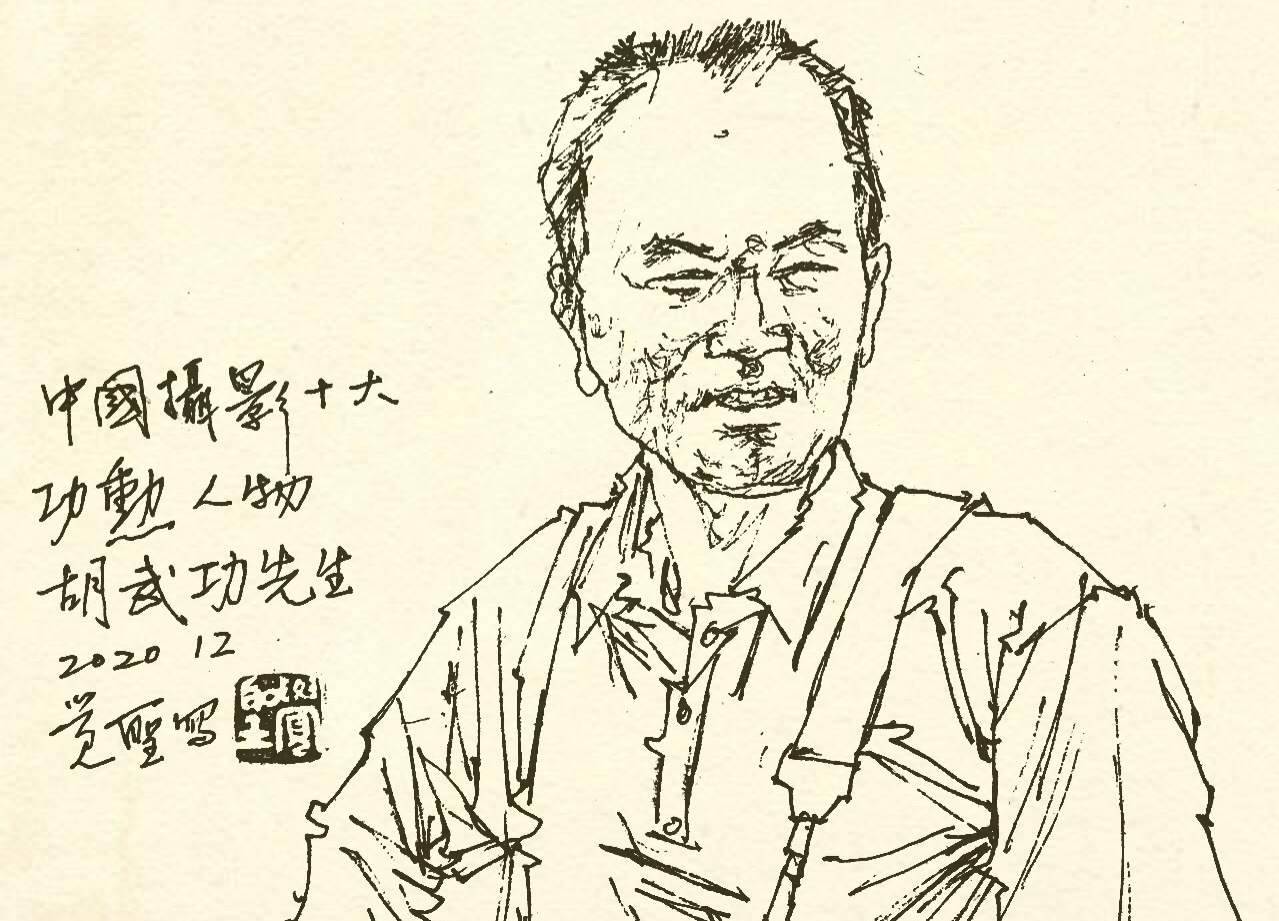 中國攝影十大
功勲人物
胡武功先生
2020 12
覚聖写